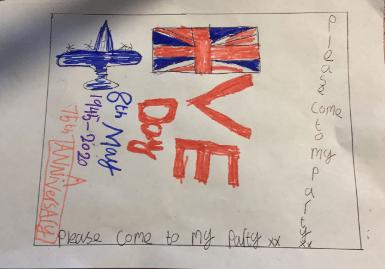 please come to my party xx
VE
Day
8th May
1945-2020
75th
ANNiVeRSARY
please come to my party xx